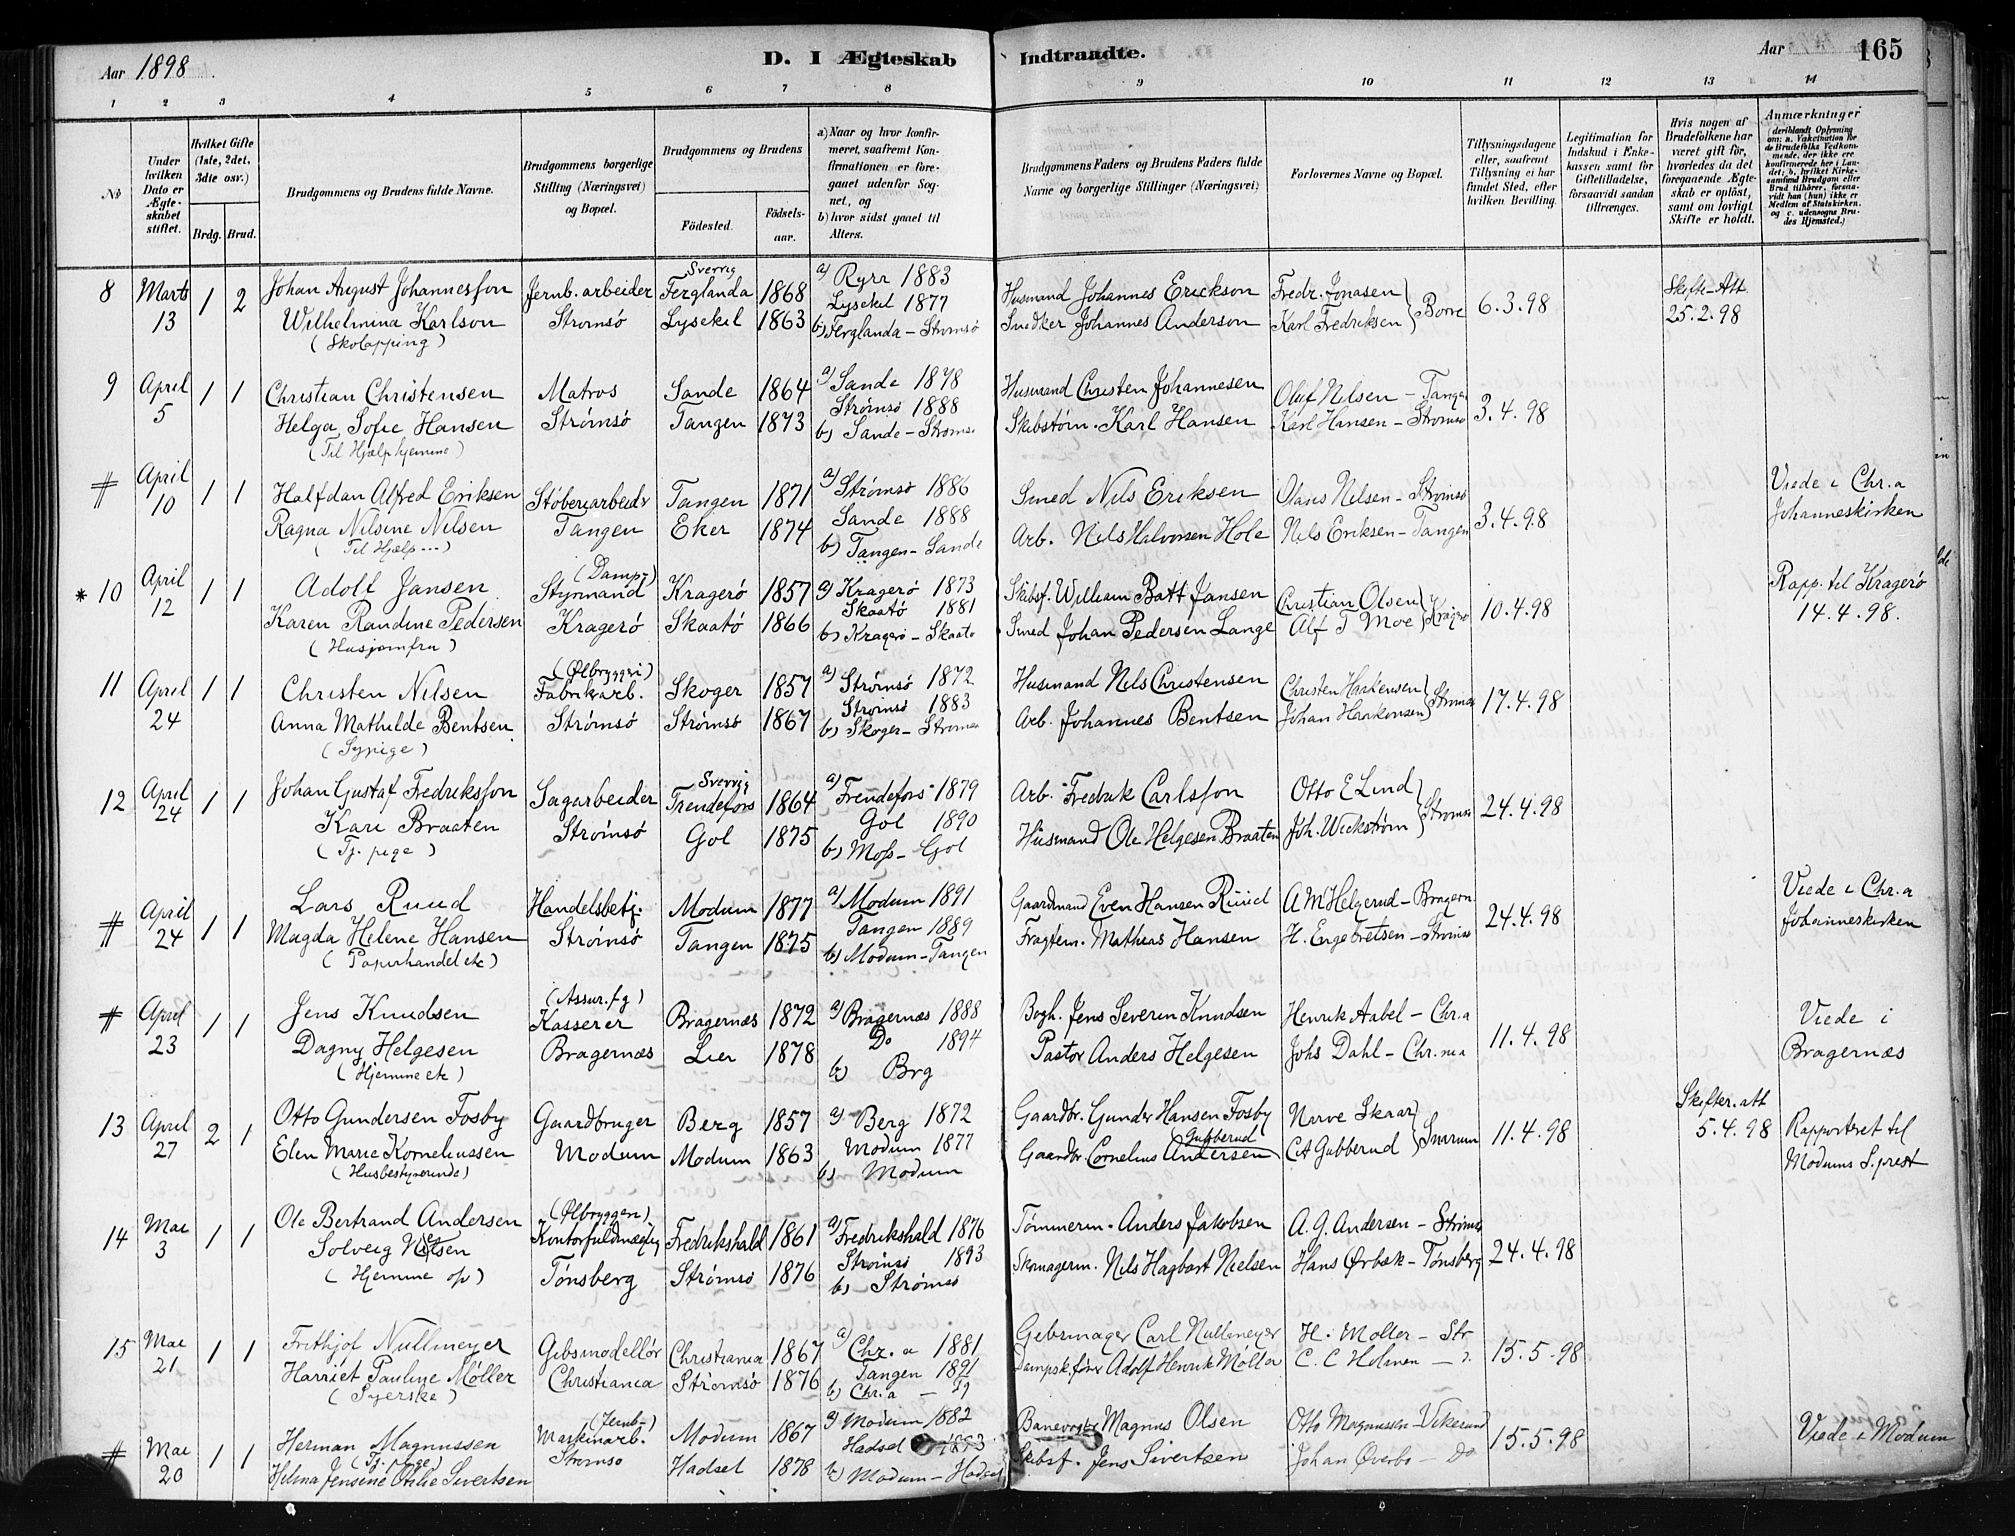 Aar 1898
D. I Ægteskab Indtraadte.
Aar 165
1 2 3 4 5 6 7 8 9 10 11 12 13 14
No
Under hvilken Dato er Ægteskabet stiftet.
Hvilket Gifte (1ste, 2det, 3dte osv.)
Brdg. Brud.
Brudgommens og Brudens fulde Navne.
Brudgommens borgerlige Stilling (Næringsvei) og Bopæl.
Brudgommens og Brudens
Fødested. Fødselsaar.
a) Naar og hvor konfirmeret, saafremt Konfirmationen er foregaaet udenfor Sognet, og
b) hvor sidst gaaet til Alters.
Brudgommens Faders og Brudens Faders fulde Navne og borgerlige Stillinger (Næringsvei)
Forlovernes Navne og Bopæl.
Tillysningsdagene eller, saafremt Tillysning ei har fundet Sted, efter hvilken Bevilling.
Legitimation for Indskud i Enkekassen samt for Giftetilladelse, forsaavidt saadan tiltrænges.
Hvis nogen af Brudefolkene har været gift før, hvorledes da det foregaaende Ægteskab er opløst, samt om lovligt Skifte er holdt.
Anmærkninger (deriblandt Oplysning om: a. Vakcination for de Brudefolks Vedkommende, der ikke ere konfirmerede her i Landet; b. hvilket Kirkesamfund Brudgom eller Brud tilhører, forsaavidt han (hun) ikke er Medlem af Statskirken, og c. udensogns Brudes Hjemsted.)
8 Marts 13 1 2 Johan August Johannesson Jernb. arbeider Sverrig Ferglanda 1868 a) Ryrr 1883 Husmand Johannes Erickson Fredr. Jonasen 6.3.98 Skifte-Att.
Wilhelmina Karlson Strømsö Lysekil 1863 Lysekil 1877 Snedker Johannes Anderson Karl Fredriksen } Borre 25.2.98
(Skolapping) b) Ferglanda - Stromsö
9 April 5 1 1 Christian Christensen Matros Sande 1864 a) Sande 1878 Husmand Christen Johannesen Oluf Nilsen - Tangen 3.4.98
Helga Sofie Hansen Strømsö Tangen 1873 Strømsö 1888 Skibstøm. Karl Hansen Karl Hansen - Stromsö
(Til Hjælp hjemme) b) Sande - Stroms
# April 10 1 1 Halfdan Alfred Eriksen Støberiarbeidr Tangen 1871 a) Strømsö 1886 Smed Nils Eriksen Olaus Nilsen - Strømsö 3.4.98 Viede i Chr.a
Ragna Nilsine Nilsen Tangen Eker 1874 Sande 1888 Arb. Nils Halvorsen Hole Nils Eriksen - Tangen Johanneskirken
(Til Hjælp ...) b) Tangen - Sande
* 10 April 12 1 1 Adolf Jansen (Damps) Styrmand Kragerö 1857 a) Kragerö 1873 Skibsf. William Batt Jansen Christian Olsen 10.4.98 Rapp. til Kragerö
Karen Randine Pedersen Kragerö Skaatö 1866 Skaatö 1881 Smed Johan Pedersen Lange Alf T Moe } Kragerö 14.4.98.
(Husjomfru) b) Kragerø - Skaatö
11 April 24 1 1 Christen Nilsen (Ølbryggri) Fabrikarb. Skoger 1857 a) Strømsö 1872 Husmand Nils Christensen Christen Haakensen 17.4.98
Anna Mathilde Bentsen Strømsö Strømsö 1867 Strømsö 1883 Arb. Johannes Bentsen Johan Haakonsen } Stromsö
(Sypige) b) Skoger - Stromsø
12 April 24 1 1 Johan Gustaf Fredriksson Sagarbeider Sverrig Frendefors 1864 a) Frendefors 1879 Arb. Fredrik Carlsson Otto E Lind 24.4.98
Kari Braaten Strømsö Gol 1875 Gol 1890 Husmand Ole Helgesen Braaten Joh. Wickstrøm } Stromsö
(Tj. pige) b) Moss - Gol
# April 24 1 1 Lars Ruud Handelsbetj. Modum 1877 a) Modum 1891 Gaardmand Even Hansen Ruud A M Helgerud - Bragern 24.4.98 Viede i Chr.a
Magda Helene Hansen Strømsö Tangen 1875 Tangen 1889 Fragtem. Mathias Hansen H. Engebretsen - Strømsö Johanneskirken
(Papirhandel etc) b) Modum - Tangen
# April 23 1 1 Jens Knudsen (Assur. fg) Kasserer Bragernæs 1872 a) Bragernæs 1888 Bogh. Jens Severin Knudsen Henrik Aabel - Chr.a 11.4.98 Viede i
Dagny Helgesen Bragernæs Lier 1878 Do 1894 Pastor Anders Helgesen Johs Dahl - Chr.nia Bragernæs
(Hjemme etc) b) Brg
13 April 27 2 1 Otto Gundersen Fosby Gaardbruger Berg 1857 a) Berg 1872 Gaardbr. Gunder Hansen Fosby Narve Skaar 11.4.98 Skifter. att 5.4.98 Rapporteret til
Elen Marie Korneliussen Modum Modum 1863 Modum 1877 Gaardbr Cornelius Andersen Gubberud C A Gubberud } Snarum Modums S. prest
(Husbestyrerinde) b) Modum
14 Mai 3 1 1 Ole Bertrand Andersen (Ølbryggeri) Kontorfuldmægtig Fredrikshald 1861 a) Fredrikshald 1876 Tømmerm. Anders Jakobsen A. G. Andersen - Strømsö 24.4.98
Solveig Nielsen Tønsberg Strømsö 1876 Strømsö 1893 Skomagerm. Nils Hagbart Nielsen Hans Ørbæk - Tønsberg
(Hjemme op) b) Strømsö
15 Mai 21 1 1 Frithjof Nullmeyer Gibsmodellør Christiania 1867 a) Chr.a 1881 Gibsmager Carl Nullmeyer H. Moller - Str 15.5.98
Harriet Pauline Møller Christiania Strømsö 1876 Tangen 1891 Dampsk. fører Adolf Henrik Møller C. C Holmen - D.
(Syerske) b) Chr.a - Tg
# Mai 20 1 1 Herman Magnussen (Jernb-) Maskinarb. Modum 1867 a) Modum 1882 Banevogter Magnus Olsen Otto Magnussen - Vikersund 15.5.98 Viede i Modum
(Tj. pige) Strømsö Hadsel 1893 Skibsf. Jens Sivertsen Johan Øverbo - Do
Helma Jensine Otilie Sivertsen Hadsel 1878 b) Modum - Hadsel